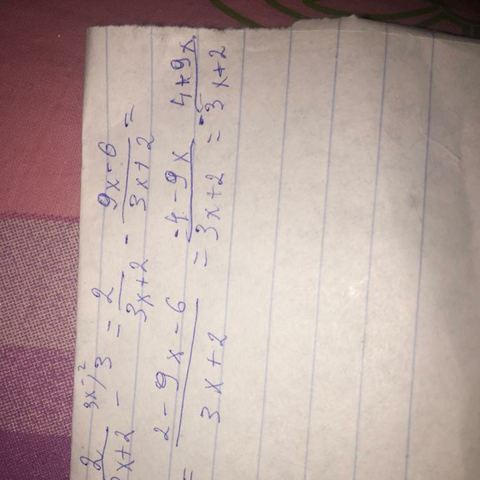 2/3x+2 - 3x-2/3 = 2/3x+2 - 9x-6/3x+2 =
= 2-9x-6/3x+2 = -4-9x/3x+2 = - 4+9x/3x+2